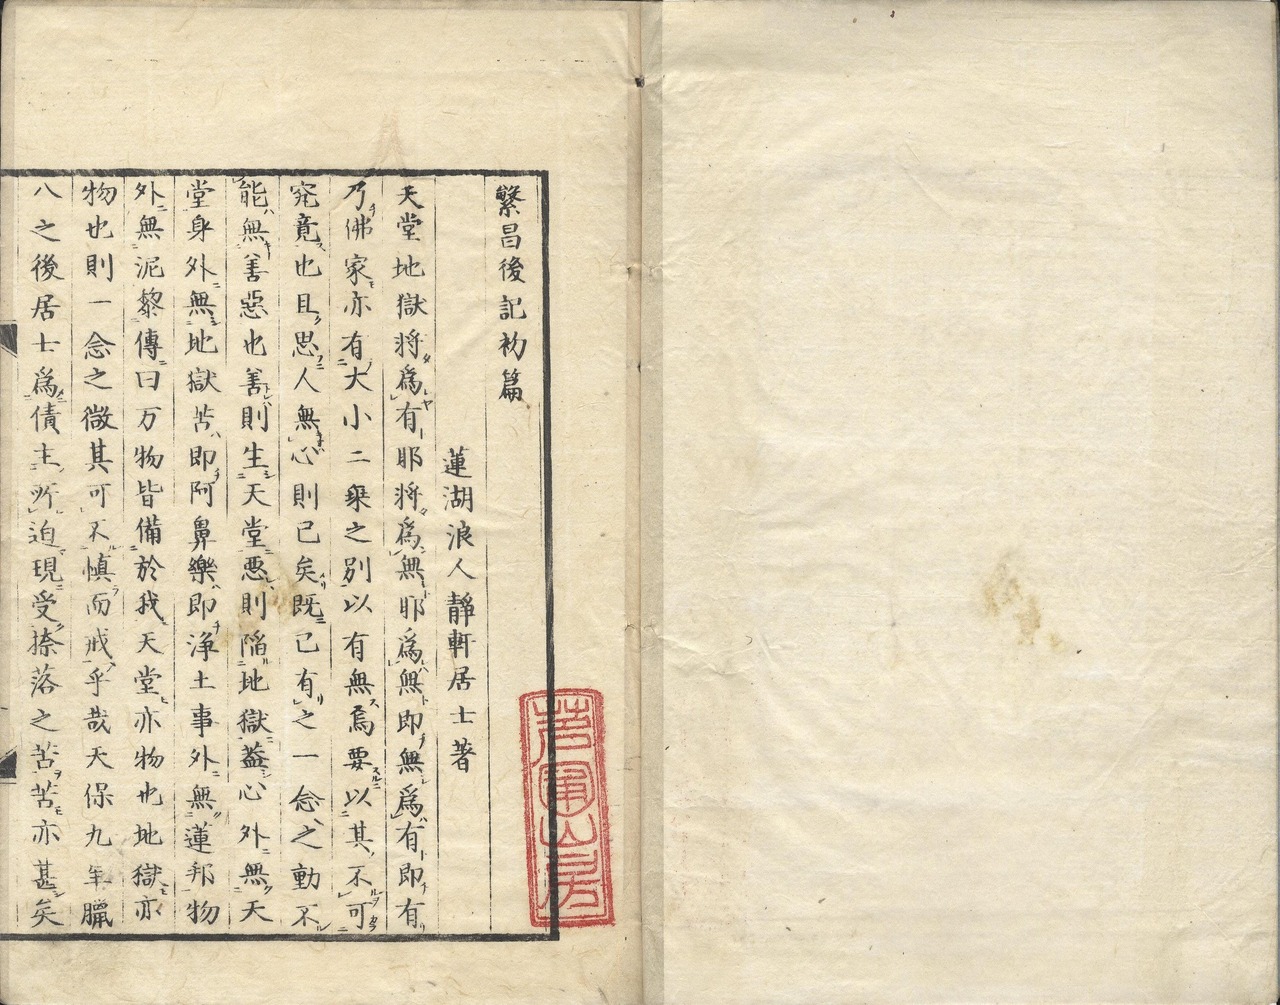 繁昌後記初篇
蓮湖浪人靜軒居士著
天堂地獄將爲有耶將爲無耶爲無即無爲有即有
乃佛家亦有大小二乗之別以有無焉要以其不可
究竟也且思人無心則已矣既已有之一念之動不
能無善惡也善則生天堂惡則陥地獄葢心外無天
堂身外無地獄苦即阿鼻樂即浄土事外無蓮邦物
外無泥黎傳曰万物皆備於我天堂亦物也地獄亦
物也則一念之微其可不慎而戒乎哉天保九年臘
八之後居士爲債主所迫現受捺落之苦苦亦甚矣